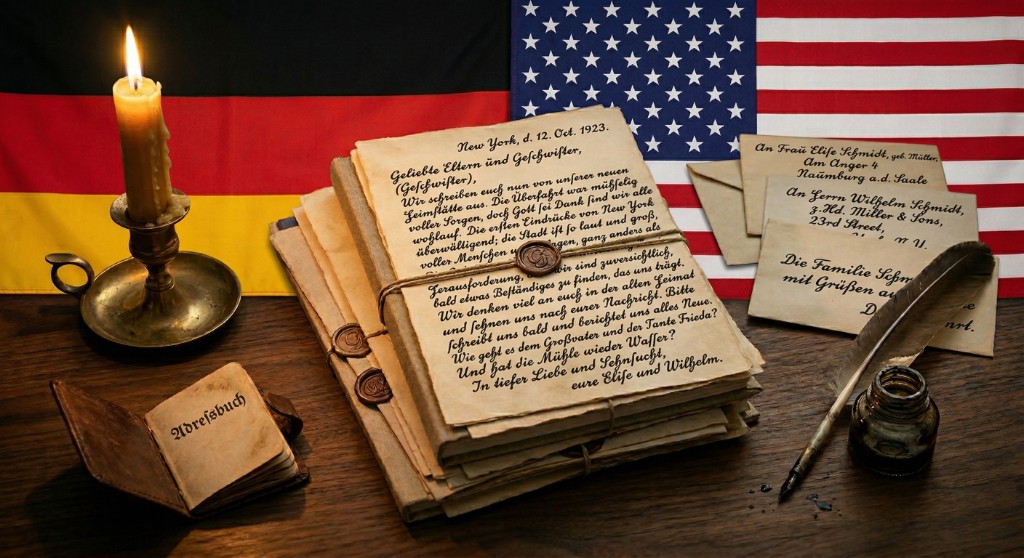 New York, d. 12. Oct. 1923.
Geliebte Eltern ünd Geſchwiſter,
(Geſchwiſter),
Wir ſchreiben euch nun von unſerer neuen
Heimſtätte aus. Die Überfahrt war mühſelig
voller Sorgen, doch Gott ſei Dank ſind wir alle
wohlauf. Die erſten Eindrücke von New York
überwältigend; die Stadt iſt ſo laut und groß,
voller Menſchen ganz anders als
Herausforderung, wir ſind zuverſichtlich,
bald etwas Beſtändiges zu finden, das uns trägt.
Wir denken viel an euch in der alten Heimat
und ſehnen uns nach eurer Nachricht. Bitte
ſchreibt uns bald und berichtet uns alles Neue.
Wie geht es dem Großvater und der Tante Frieda?
Und hat die Mühle wieder Waſſer?
In tiefer Liebe und Sehnſucht,
eure Eliſe und Wilhelm.
An Fraü Eliſe Schmidt, geb. Müller,
Am Anger 4
Naümburg a.d. Saale
An Herrn Wilhelm Schmidt,
z.Hd. Miller & Sons,
23rd Street,
Die Familie
mit Grüßen
Adreſsbuch